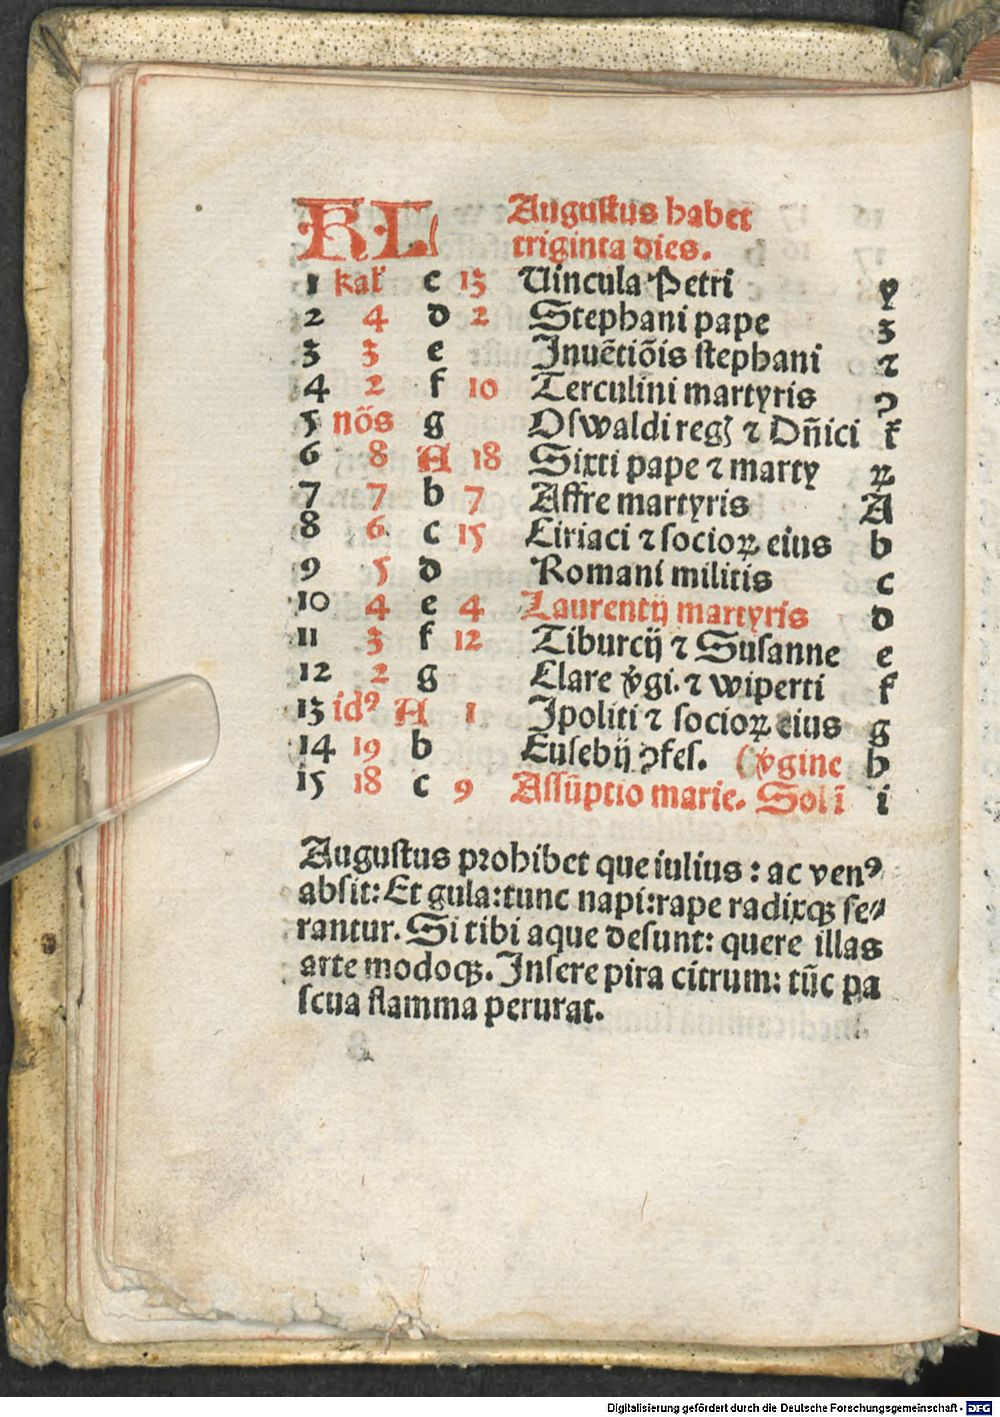 KL Auguſtus habet
triginta dies.
1 kal̄ c 13 Uincula Petri y
2 4 d 2 Stephani pape z
3 3 e Inuēc̄iōis ſtephani ⁊
4 2 f 10 Terculini martyris ꝯ
5 nōs g Oſwaldi reg ⁊ Dn̄ici
6 8 A 18 Sixti pape ⁊ marty
7 7 b 7 Affre martyris A
8 6 c 15 Ciriaci ⁊ socioꝝ eius b
9 5 d Romani militis c
10 4 e 4 Laurentij martyris d
11 3 f 12 Tiburcij ⁊ Suſanne e
12 2 g Clare v̄gi. ⁊ wiperti f
13 idꝰ A 1 Ipoliti ⁊ socioꝝ eius g
14 19 b Euſebij ꝯfeſ. (v̄gine h
15 18 c 9 Aſſūptio marie. Sol ī i
Auguſtus prohibet que iulius: ac venꝰ
abſit: Et gula: tunc napi: rape radixqꝫ ſe⸗
rantur. Si tibi aque deſunt: quere illas
arte modoqꝫ. Inſere pira citrum: tūc pa
ſcua flamma perurat.
Digitalisierung gefördert durch die Deutsche Forschungsgemeinschaft - DFG